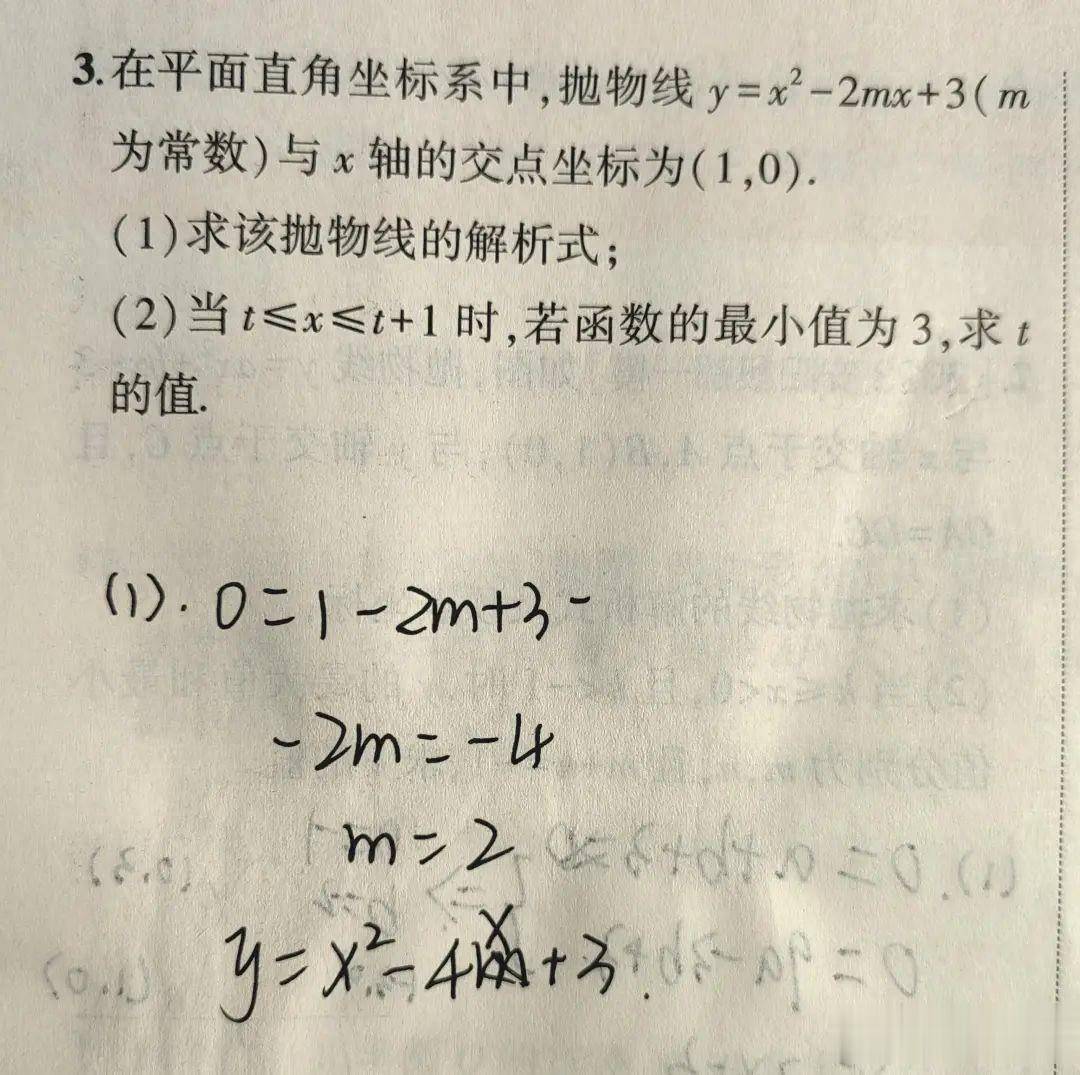 3.在平面直角坐标系中,抛物线 y=x²-2mx+3(m
为常数)与 x 轴的交点坐标为(1,0).
(1)求该抛物线的解析式;
(2)当 t≤x≤t+1 时,若函数的最小值为 3,求 t
的值.
(1). 0=1-2m+3-
-2m=-4
m=2
y=x²-4x+3.